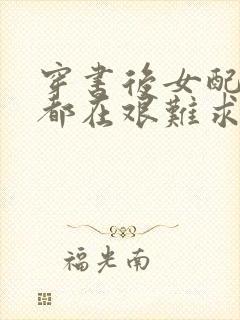 穿書後女配
都在艱難求
福光南